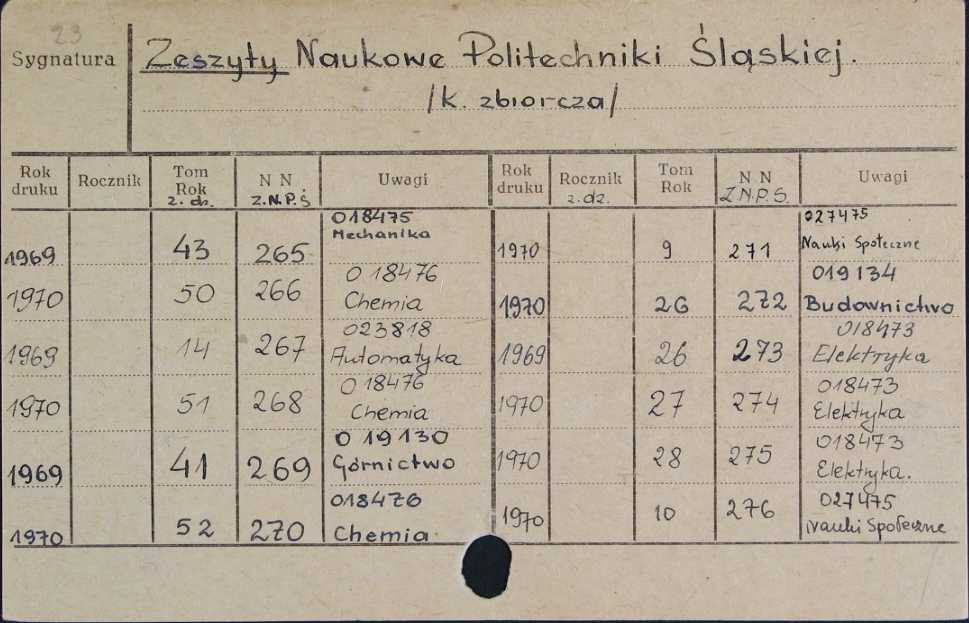 23
Sygnatura
Zeszyty Naukowe Politechniki Śląskiej.
/k. zbiorcza/
Rok druku Rocznik Tom Rok z. dz. N N Z.N.P.Ś Uwagi Rok druku Rocznik z. dz. Tom Rok N N Z.N.P.Ś. Uwagi
018475
1969 43 265 Mechanika
0 18476
1970 50 266 Chemia
023818
1969 14 267 Automatyka
0 18476
1970 51 268 Chemia
0 19130
1969 41 269 Górnictwo
018476
1970 52 270 Chemia
027475
1970 9 271 Nauki Społeczne
019134
1970 26 272 Budownictwo
018473
1969 26 273 Elektryka
018473
1970 27 274 Elektryka
018473
1970 28 275 Elektryka.
027475
1970 10 276 Nauki Społeczne